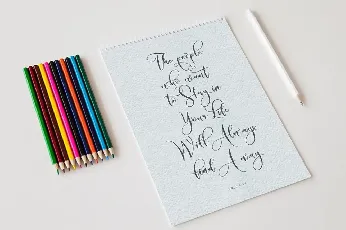 The people
who want
to Stay in
Your Life
Will Always
find A way.